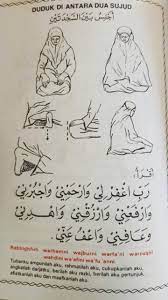 DUDUK DI ANTARA DUA SUJUD
رَبِّ اغْفِرْلِيْ وَارْحَمْنِيْ وَاجْبُرْنِيْ
وَارْفَعْنِيْ وَارْزُقْنِيْ وَاهْدِنِيْ
وَعَافِنِيْ وَاعْفُ عَنِّيْ
Rabbighfirlii warhamnii wajburnii warfa'nii warzuqnii
wahdinii wa'aafinii wa'fu 'annii.
Tuhanku ampunilah aku, rahmatilah aku, cukupkanlah aku,
angkatlah darjatku, berilah aku rezki, berilah aku petunjuk,